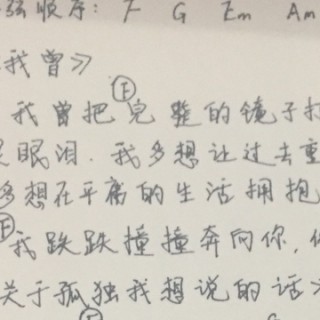 弦顺序: F G Em Am
我曾》
F
我曾把完整的镜子打
眼泪.我多想让过去重
多想在平庸的生活拥抱
F
我跌跌撞撞奔向你,你
关于孤独我想说的话